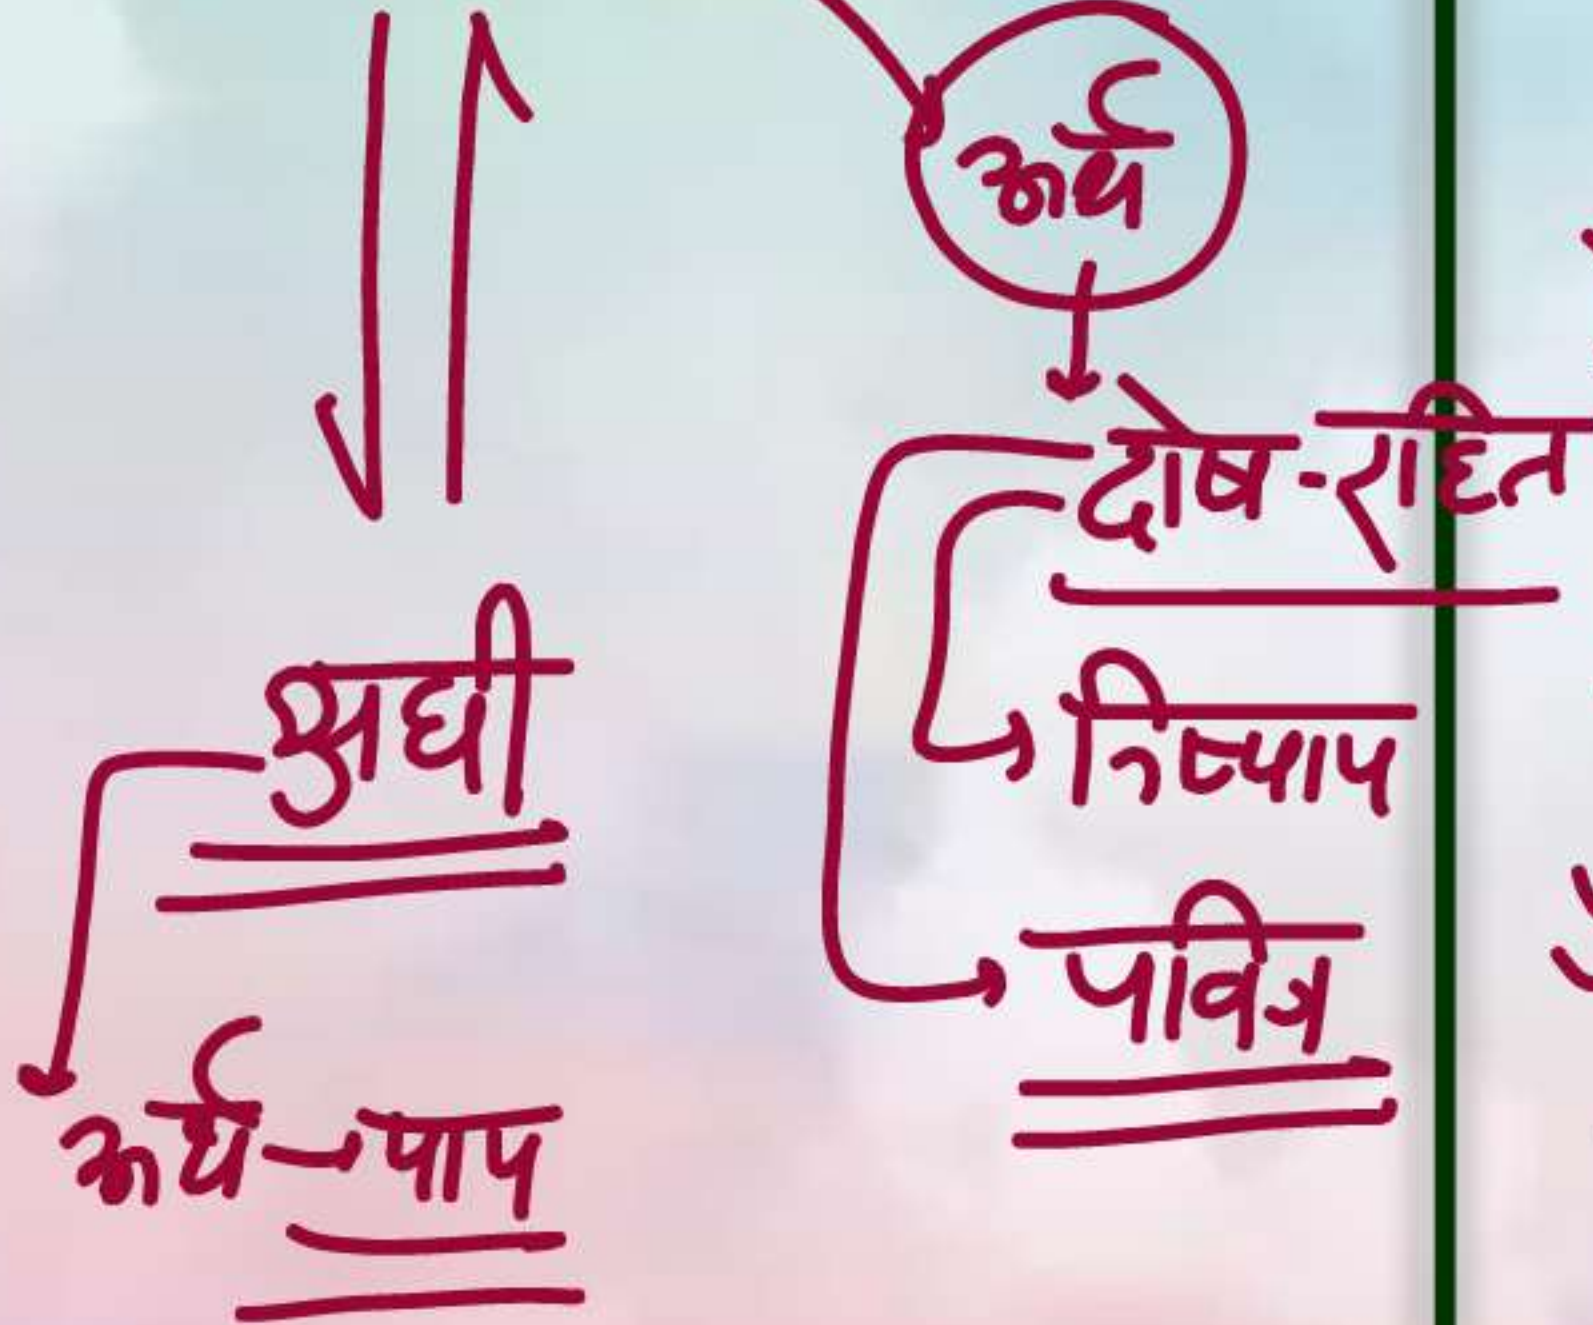 अर्थ
दोष-रहित
अघी
निष्पाप
पवित्र
अर्थ→पाप